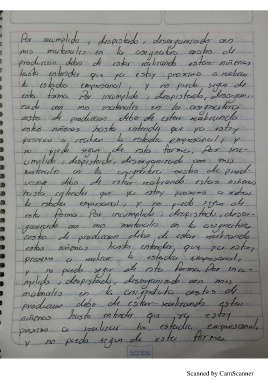 Por incumplido, despistado, desorganizado con
mis materiales en la asignatura costos de
producción debo de estar realizando estas niñerias
hasta entender que ya estoy proximo a realizar
la estadia empresarial, y no puedo seguir de
esta forma. Por incumplido, despistado, desorgani-
zado con mis materiales en la asignatura
costos de produccion debo de estar realizando
estas niñerias hasta entender que ya estoy
proximo a realizar la estadia empresarial, y
no puedo seguir de esta forma. Por incu-
mplido, despistado, desorganizado con mis
materiales en la asignatura costos de produ-
ccion debo de estar realizando estas niñerias
hasta entender que ya estoy proximo a realizar
la estadia empresarial, y no puedo seguir de
esta forma. Por incumplido, despistado, desor-
ganizado con mis materiales en la asignatura
costos de produccion debo de estar realizando
estas niñerias hasta entender, que ya estoy
proximo a realizar la estadia empresarial,
y no puedo seguir de esta forma. Por incu-
mplido, despistado, desorganizado con mis
materiales en la asignatura costos de
produccion debo de estar realizando estas
niñerias hasta entender que ya estoy
proximo a realizar la estadia empresarial,
y no puedo seguir de esta forma
Scanned by CamScanner